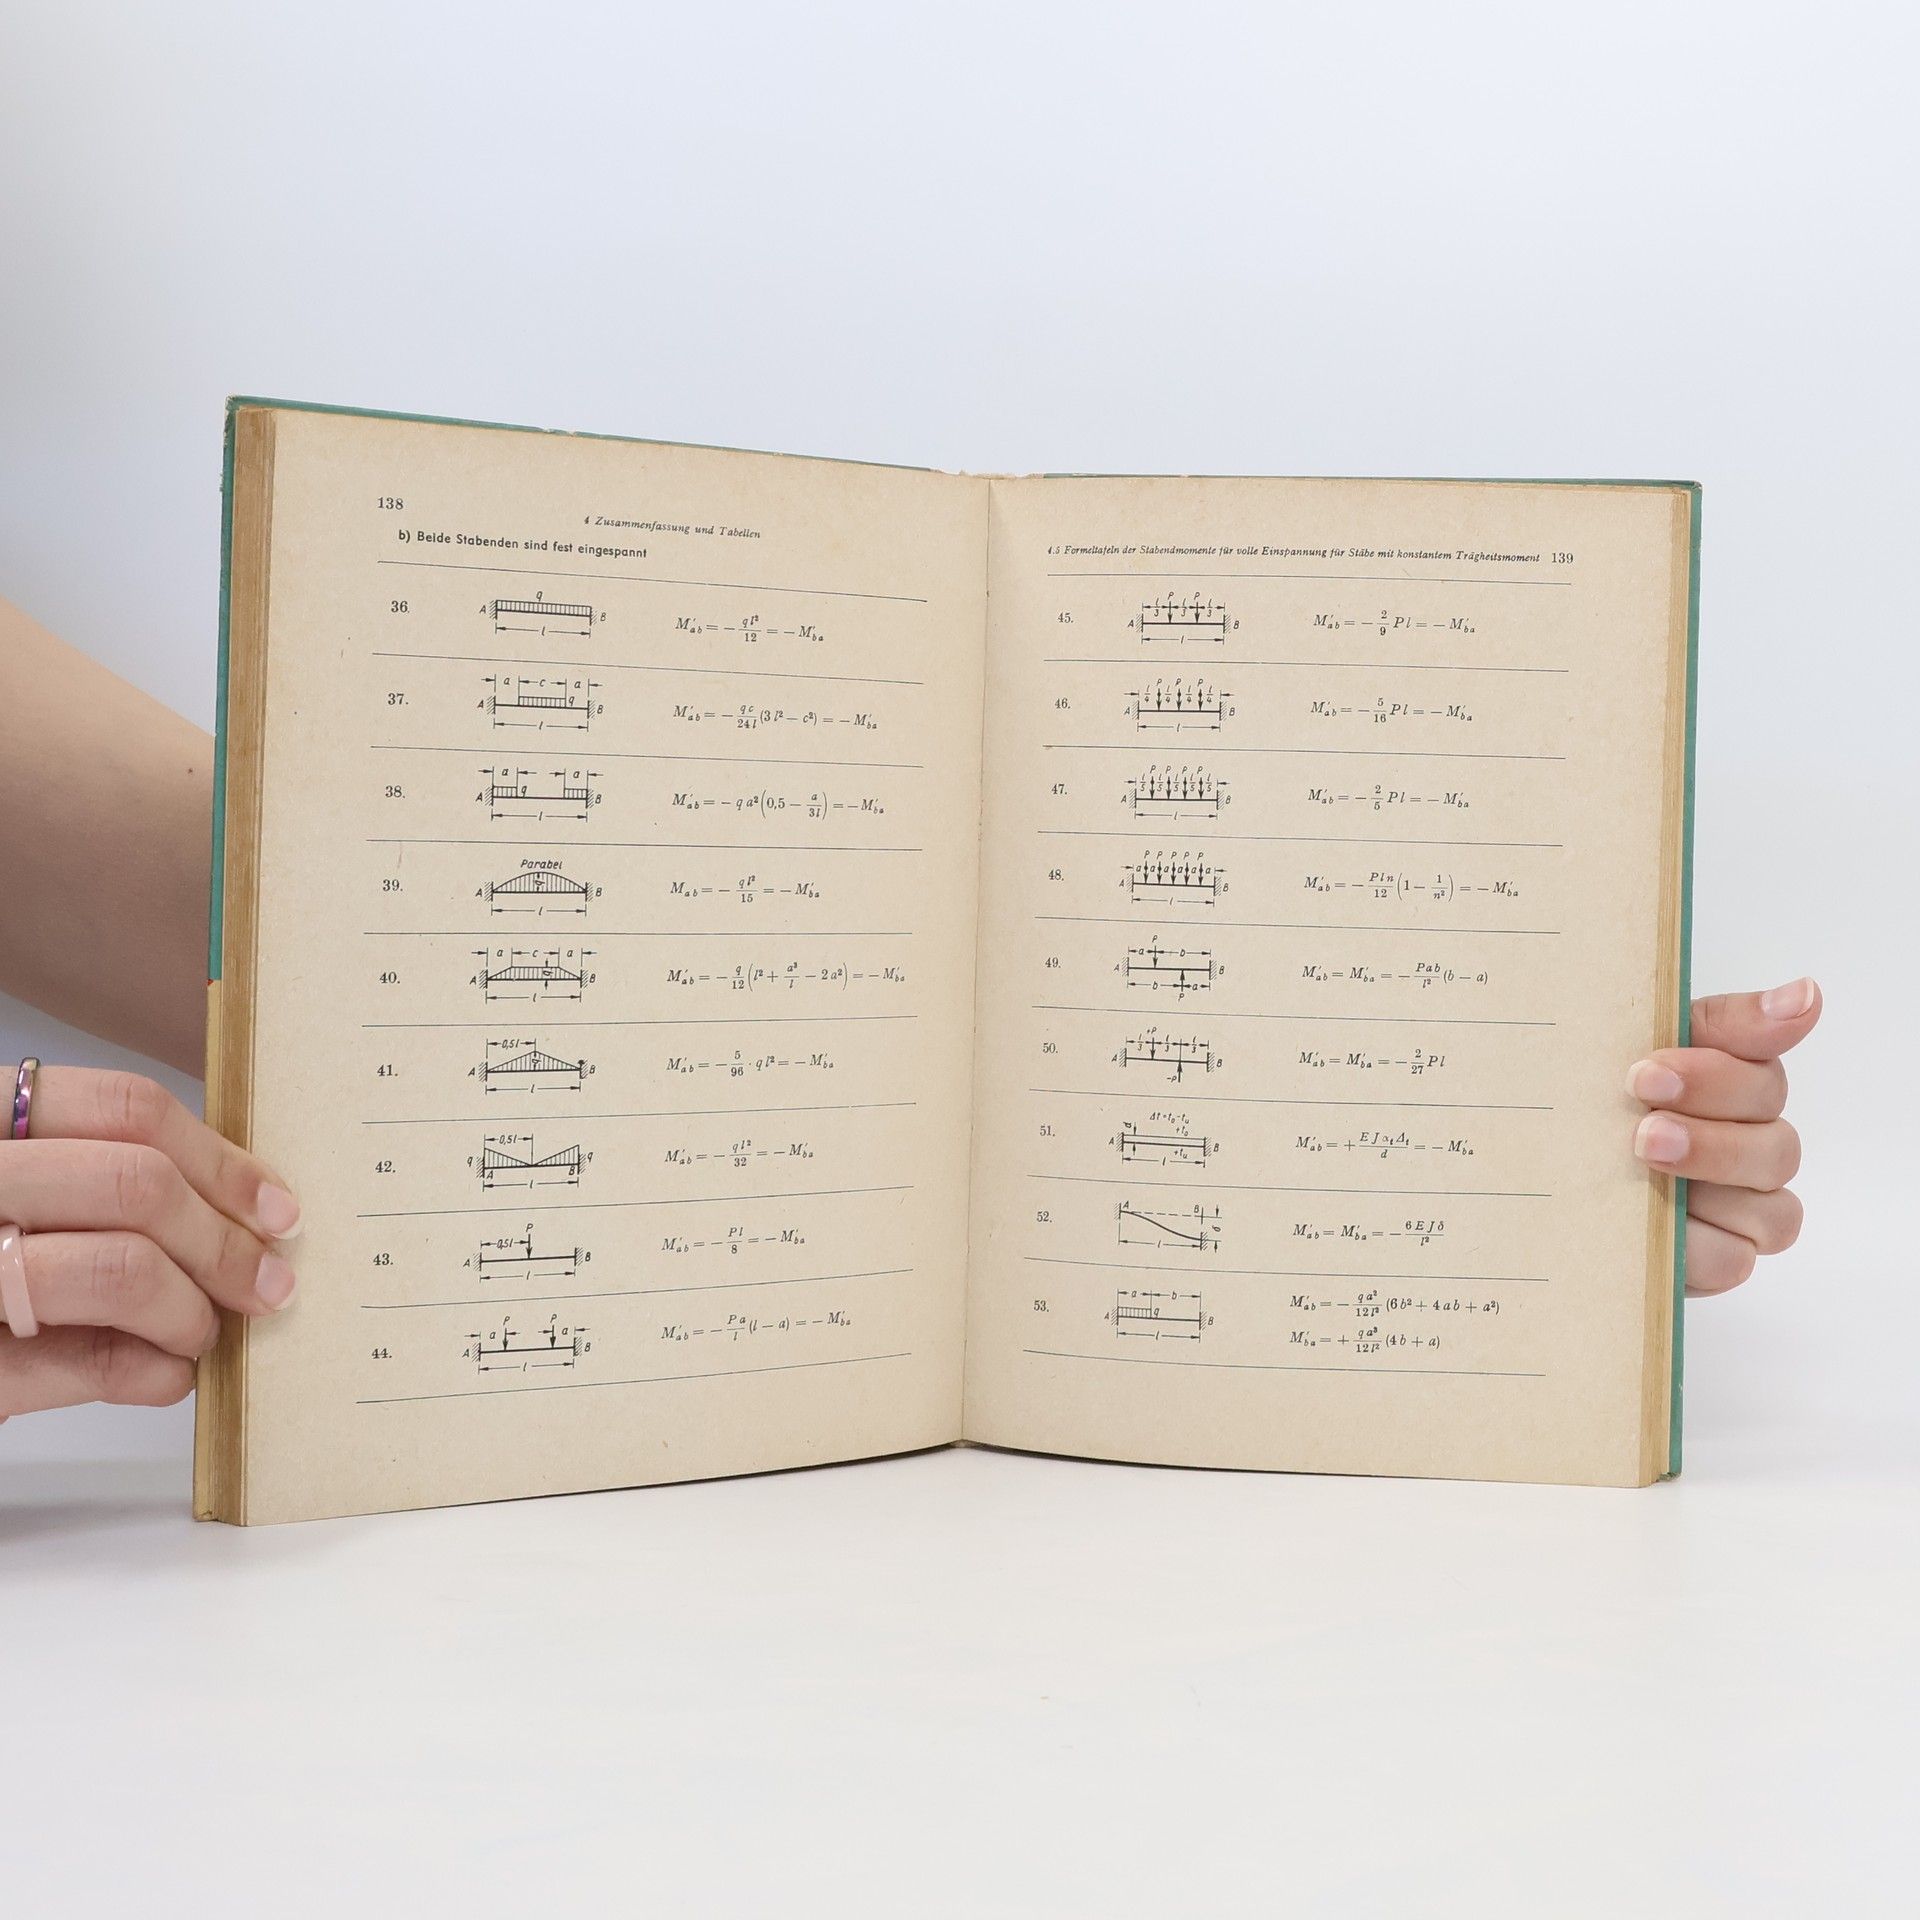 138
4 Zusammenfassung und Tabellen
b) Beide Stabenden sind fest eingespannt
36.
q
A
B
l
M′ab = − ql²/12 = − M′ba
37.
a c a
A
q
B
l
M′ab = − qc/24l (3 l² − c²) = − M′ba
38.
a a
A
q
B
l
M′ab = − q a² (0,5 − a/3l) = − M′ba
39.
Parabel
A
q
B
l
Mab = − ql²/15 = − M′ba
40.
a c a
A
q
B
l
M′ab = − q/12 (l² + a³/l − 2 a²) = − M′ba
41.
0,5l
A
q
B
l
M′ab = − 5/96 · q l² = − M′ba
42.
0,5l
q
A
B
q
l
M′ab = − ql²/32 = − M′ba
43.
P
0,5l
A
B
l
M′ab = − Pl/8 = − M′ba
44.
P P
a a
A
B
l
M′ab = − Pa/l (l − a) = − M′ba
4.5 Formeltafeln der Stabendmomente für volle Einspannung für Stäbe mit konstantem Trägheitsmoment 139
45.
P P
l/3 l/3 l/3
A
B
l
M′ab = − 2/9 P l = − M′ba
46.
P P P
l/4 l/4 l/4 l/4
A
B
l
M′ab = − 5/16 P l = − M′ba
47.
P P P P
l/5 l/5 l/5 l/5 l/5
A
B
l
M′ab = − 2/5 P l = − M′ba
48.
P P P P P
a a a a a a
A
B
l
M′ab = − Pln/12 (1 − 1/n²) = − M′ba
49.
P
a b
A
B
b a
P
M′ab = M′ba = − Pab/l² (b − a)
50.
+P
l/3 l/3 l/3
A
B
-P
M′ab = M′ba = − 2/27 P l
51.
Δt=t₀-tᵤ
d
+t₀
A
B
+tᵤ
l
M′ab = + E J αₜ Δₜ/d = − M′ba
52.
A
B
l
M′ab = M′ba = − 6 E J δ/l²
53.
a b
A
q
B
l
M′ab = − qa²/12l² (6 b² + 4 a b + a²)
M′ba = + qa³/12l² (4 b + a)